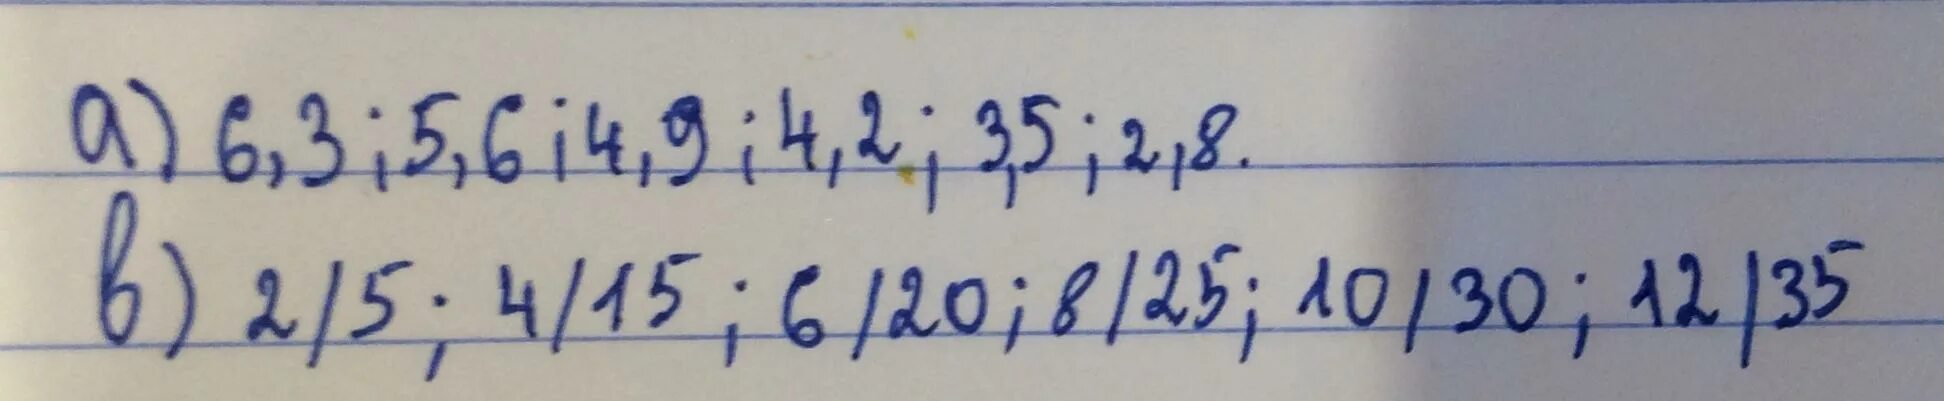 а) 6,3; 5,6; 4,9; 4,2; 3,5; 2,8.
в) 2/5; 4/15; 6/20; 8/25; 10/30; 12/35